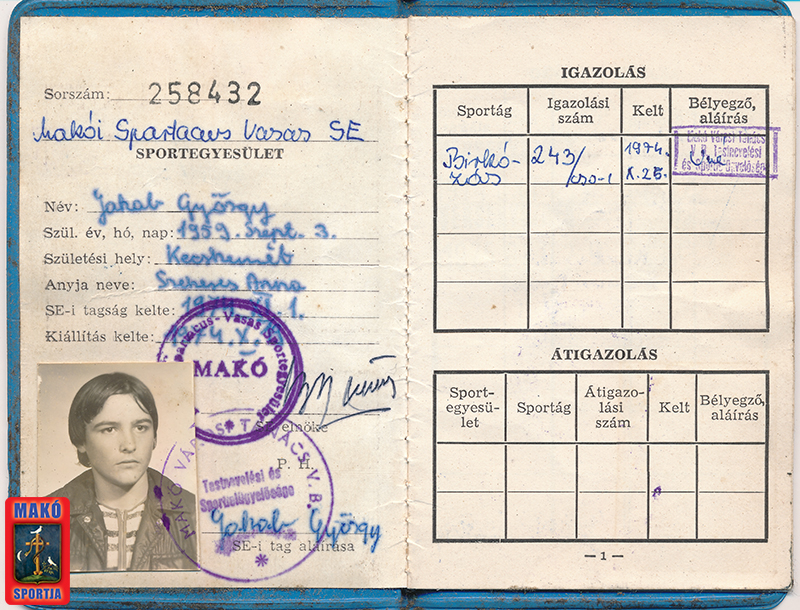 Sorszám: 258432
Makói Spartacus Vasas SE
SPORTEGYESÜLET
Név: Jakab György
Szül. év, hó, nap: 1959. Szept. 3.
Születési hely: Kecskemét
Anyja neve: Anna
SE-i tagság kelte:
Kiállítás kelte: 1974. X.
Spartacus - Vasas Sportegyesület
MAKÓ
P. H.
MAKÓ VÁROSI TANÁCS V. B.
Testnevelési és
Sportfelügyelősége
Jakab György
SE-i tag aláírása
MAKÓ
SPORTJA
IGAZOLÁS
Sportág Igazolási szám Kelt Bélyegző, aláírás
Birkó-
zás 243/cso-i 1974. X. 25.
Makó Városi Tanács
V. B. Testnevelési
ÁTIGAZOLÁS
Sport-
egyesü-
let Sportág Átigazo-
lási
szám Kelt Bélyegző,
aláírás
— 1 —